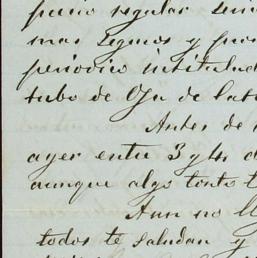 regular
mas seguros y
periodico intitulad
tubo de Oja de lata
Antes de
ayer entre 3 y 4 d
aunque algo tonto t
Aun no ll
todos te saludan y